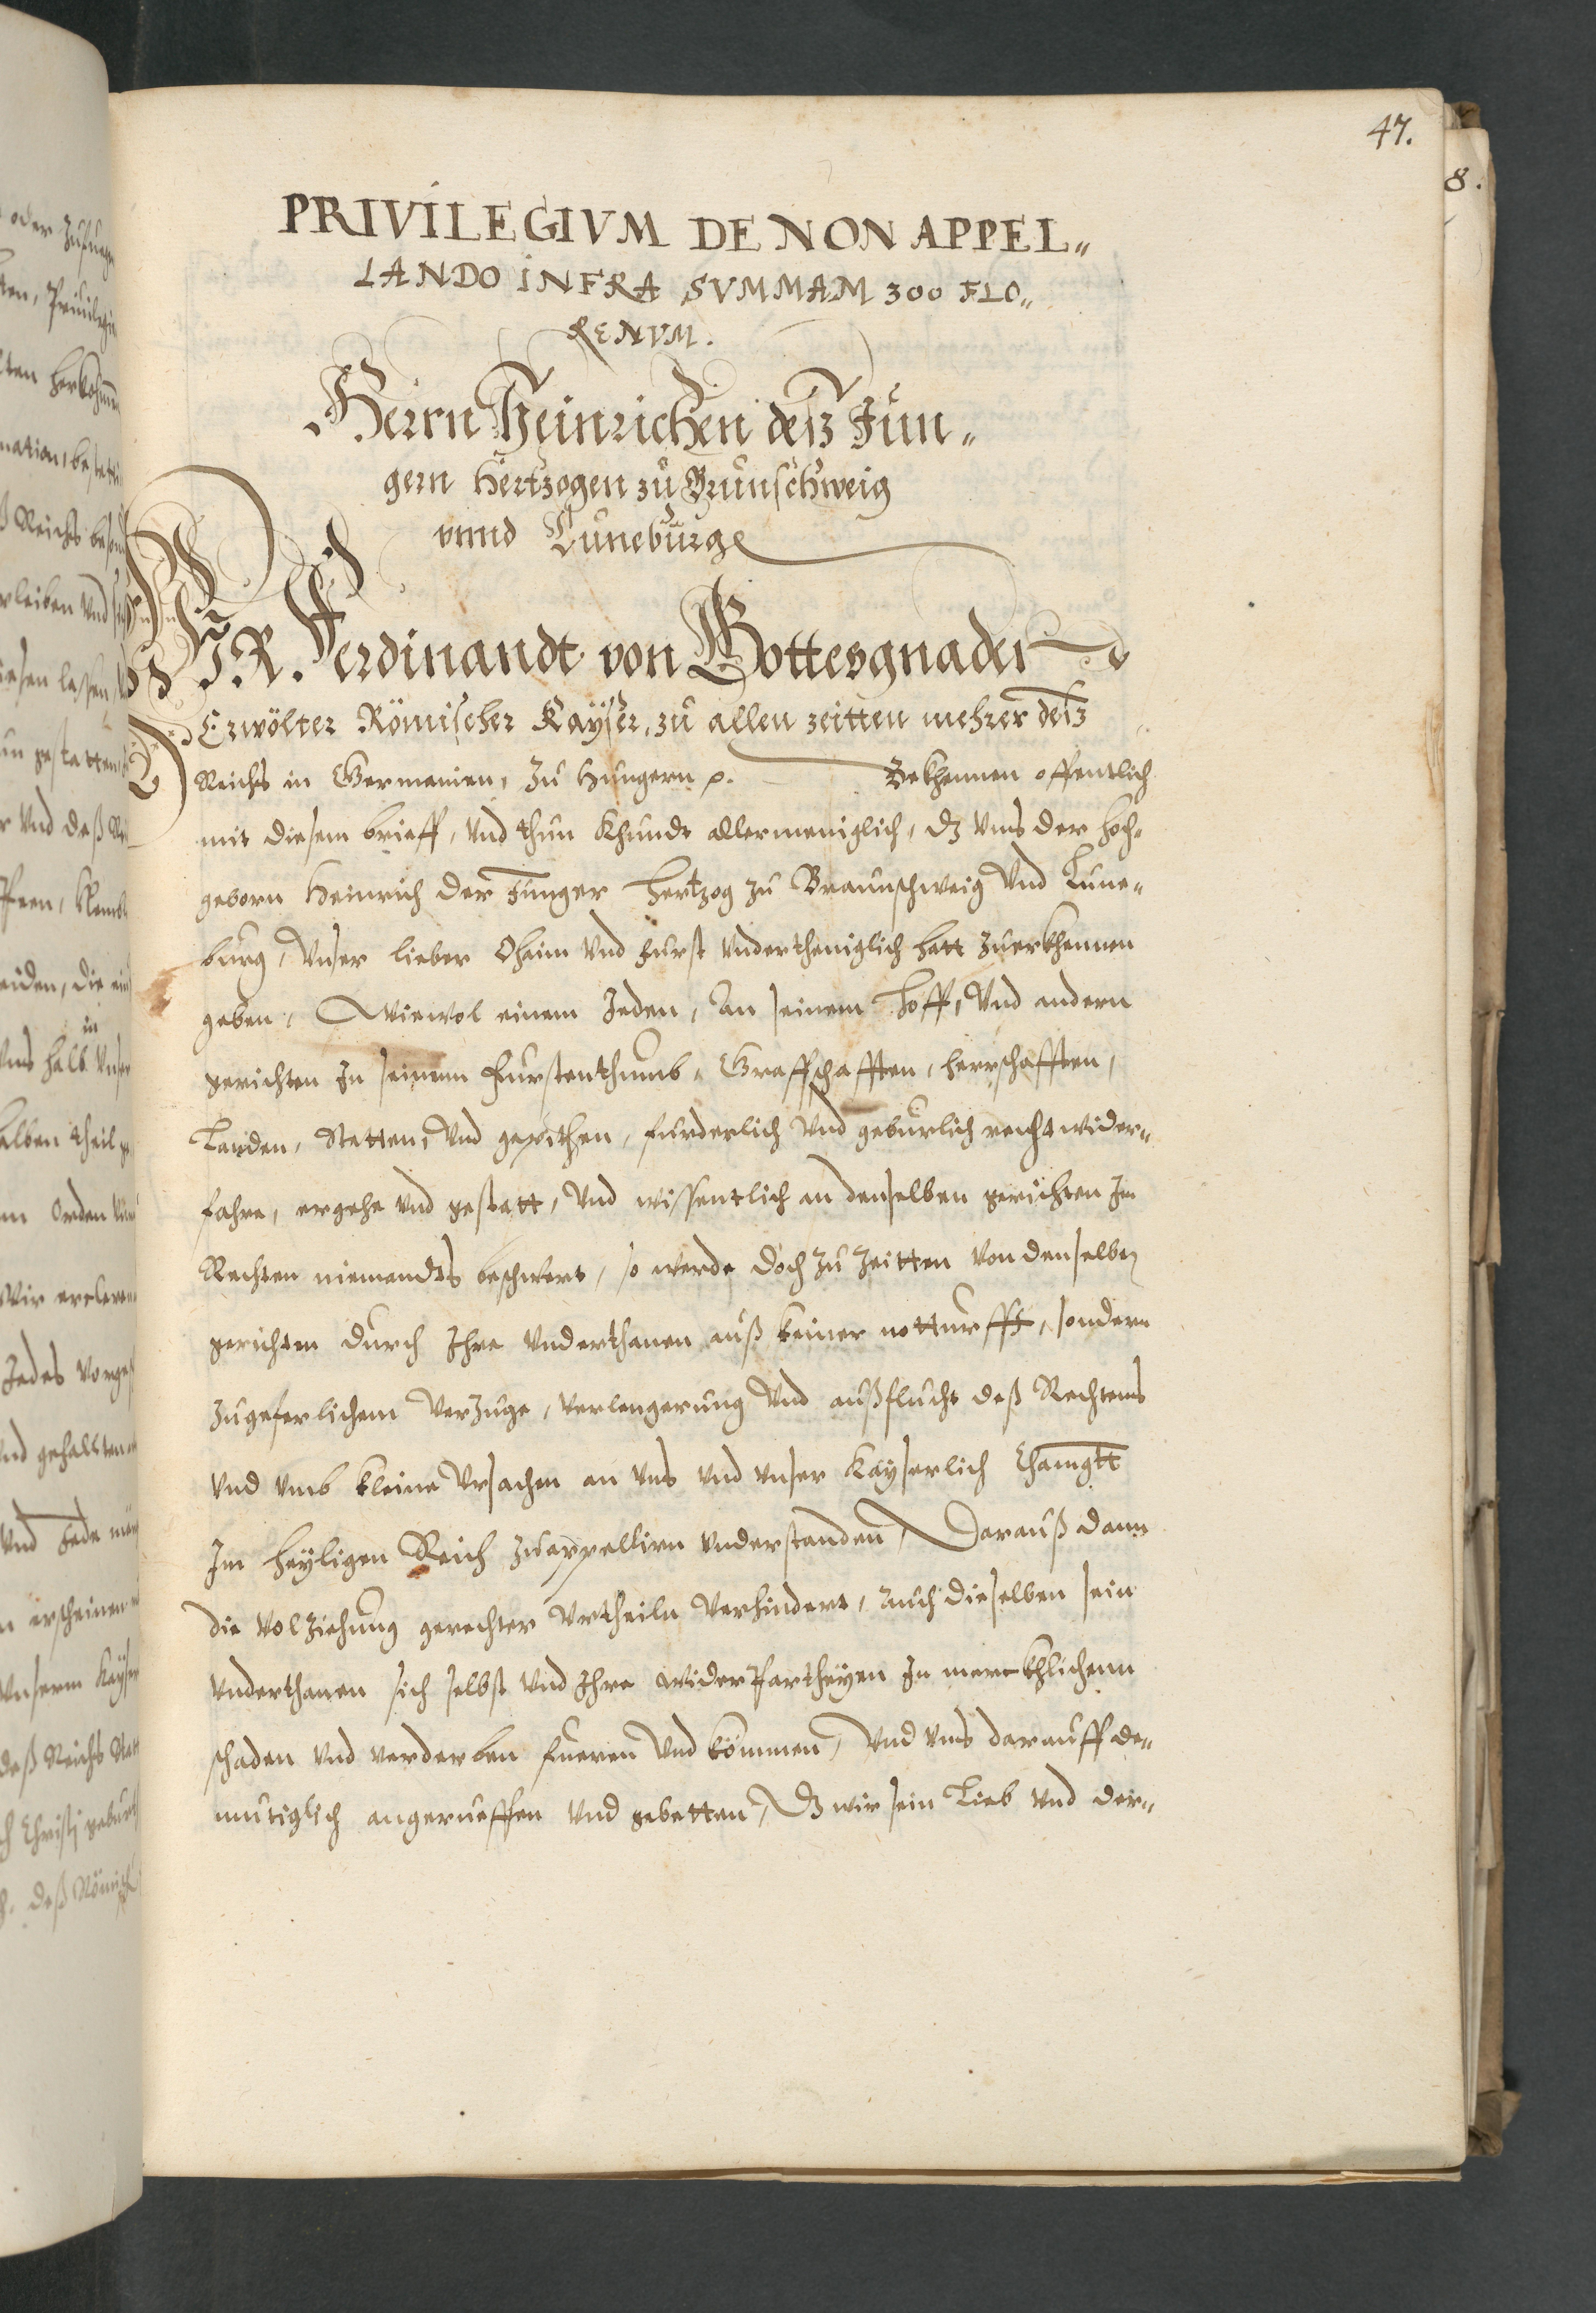 47.
8.
PRIVILEGIVM DE NON APPEL„
LANDO INFRA SVMMAM 300 FLO„
RENVM.
Herrn Heinrichen deß Jun„
gern Hertzogen zu Brunschweig
vnnd Luneburg
WIR. Ferdinandt von Gottesgnaden
Erwölter Römischer Kayser, zu allen zeitten mehrer deß
Reichs in Germanien, Zu Hungern p. Bekhennen offentlich
mit diesem brieff, Vnd thun khundt allermeniglich, dz Vns der hoch„
geborn Heinrich der Junger Hertzog zu Braunschweig Vnd Lune„
burg, Vnser lieber Ohaim Vnd Furst Vndertheniglich hatt zuerkhennen
geben, Wiewol einem Jeden, An seinem Hoff, Vnd andern
gerichten In seinem Furstenthumb, Graffschafften, herrschafften,
Landen, Stetten, Vnd gepiethen, furderlich Vnd geburlich recht wider„
fahre, ergehe Vnd gestatt, Vnd wissentlich an denselben gerichten Im
Rechten niemandts beschwert, so werde doch zu Zeitten Von denselben
gerichten durch Ihre Vnderthanen auß keiner notturfft, sondern
zugeferlichem Verzuge, Verlengerung Vnd außflucht deß Rechtens
Vnd Vmb kleine Vrsachen an Vns Vnd Vnser Kayserlich Chamgtt
Im heyligen Reich zuappellirn Vnderstanden, Darauß dann
die Volziehung gerechter Vrtheiln Verhindert, Auch dieselben sein
Vnderthanen sich selbst Vnd Ihre widerPartheyen In merckhlichenn
schaden Vnd Verderben fueren Vnd kommen, Vnd Vns darauff de„
mutiglich angerueffen Vnd gebetten, Dz wir sein Lieb Vnd der„